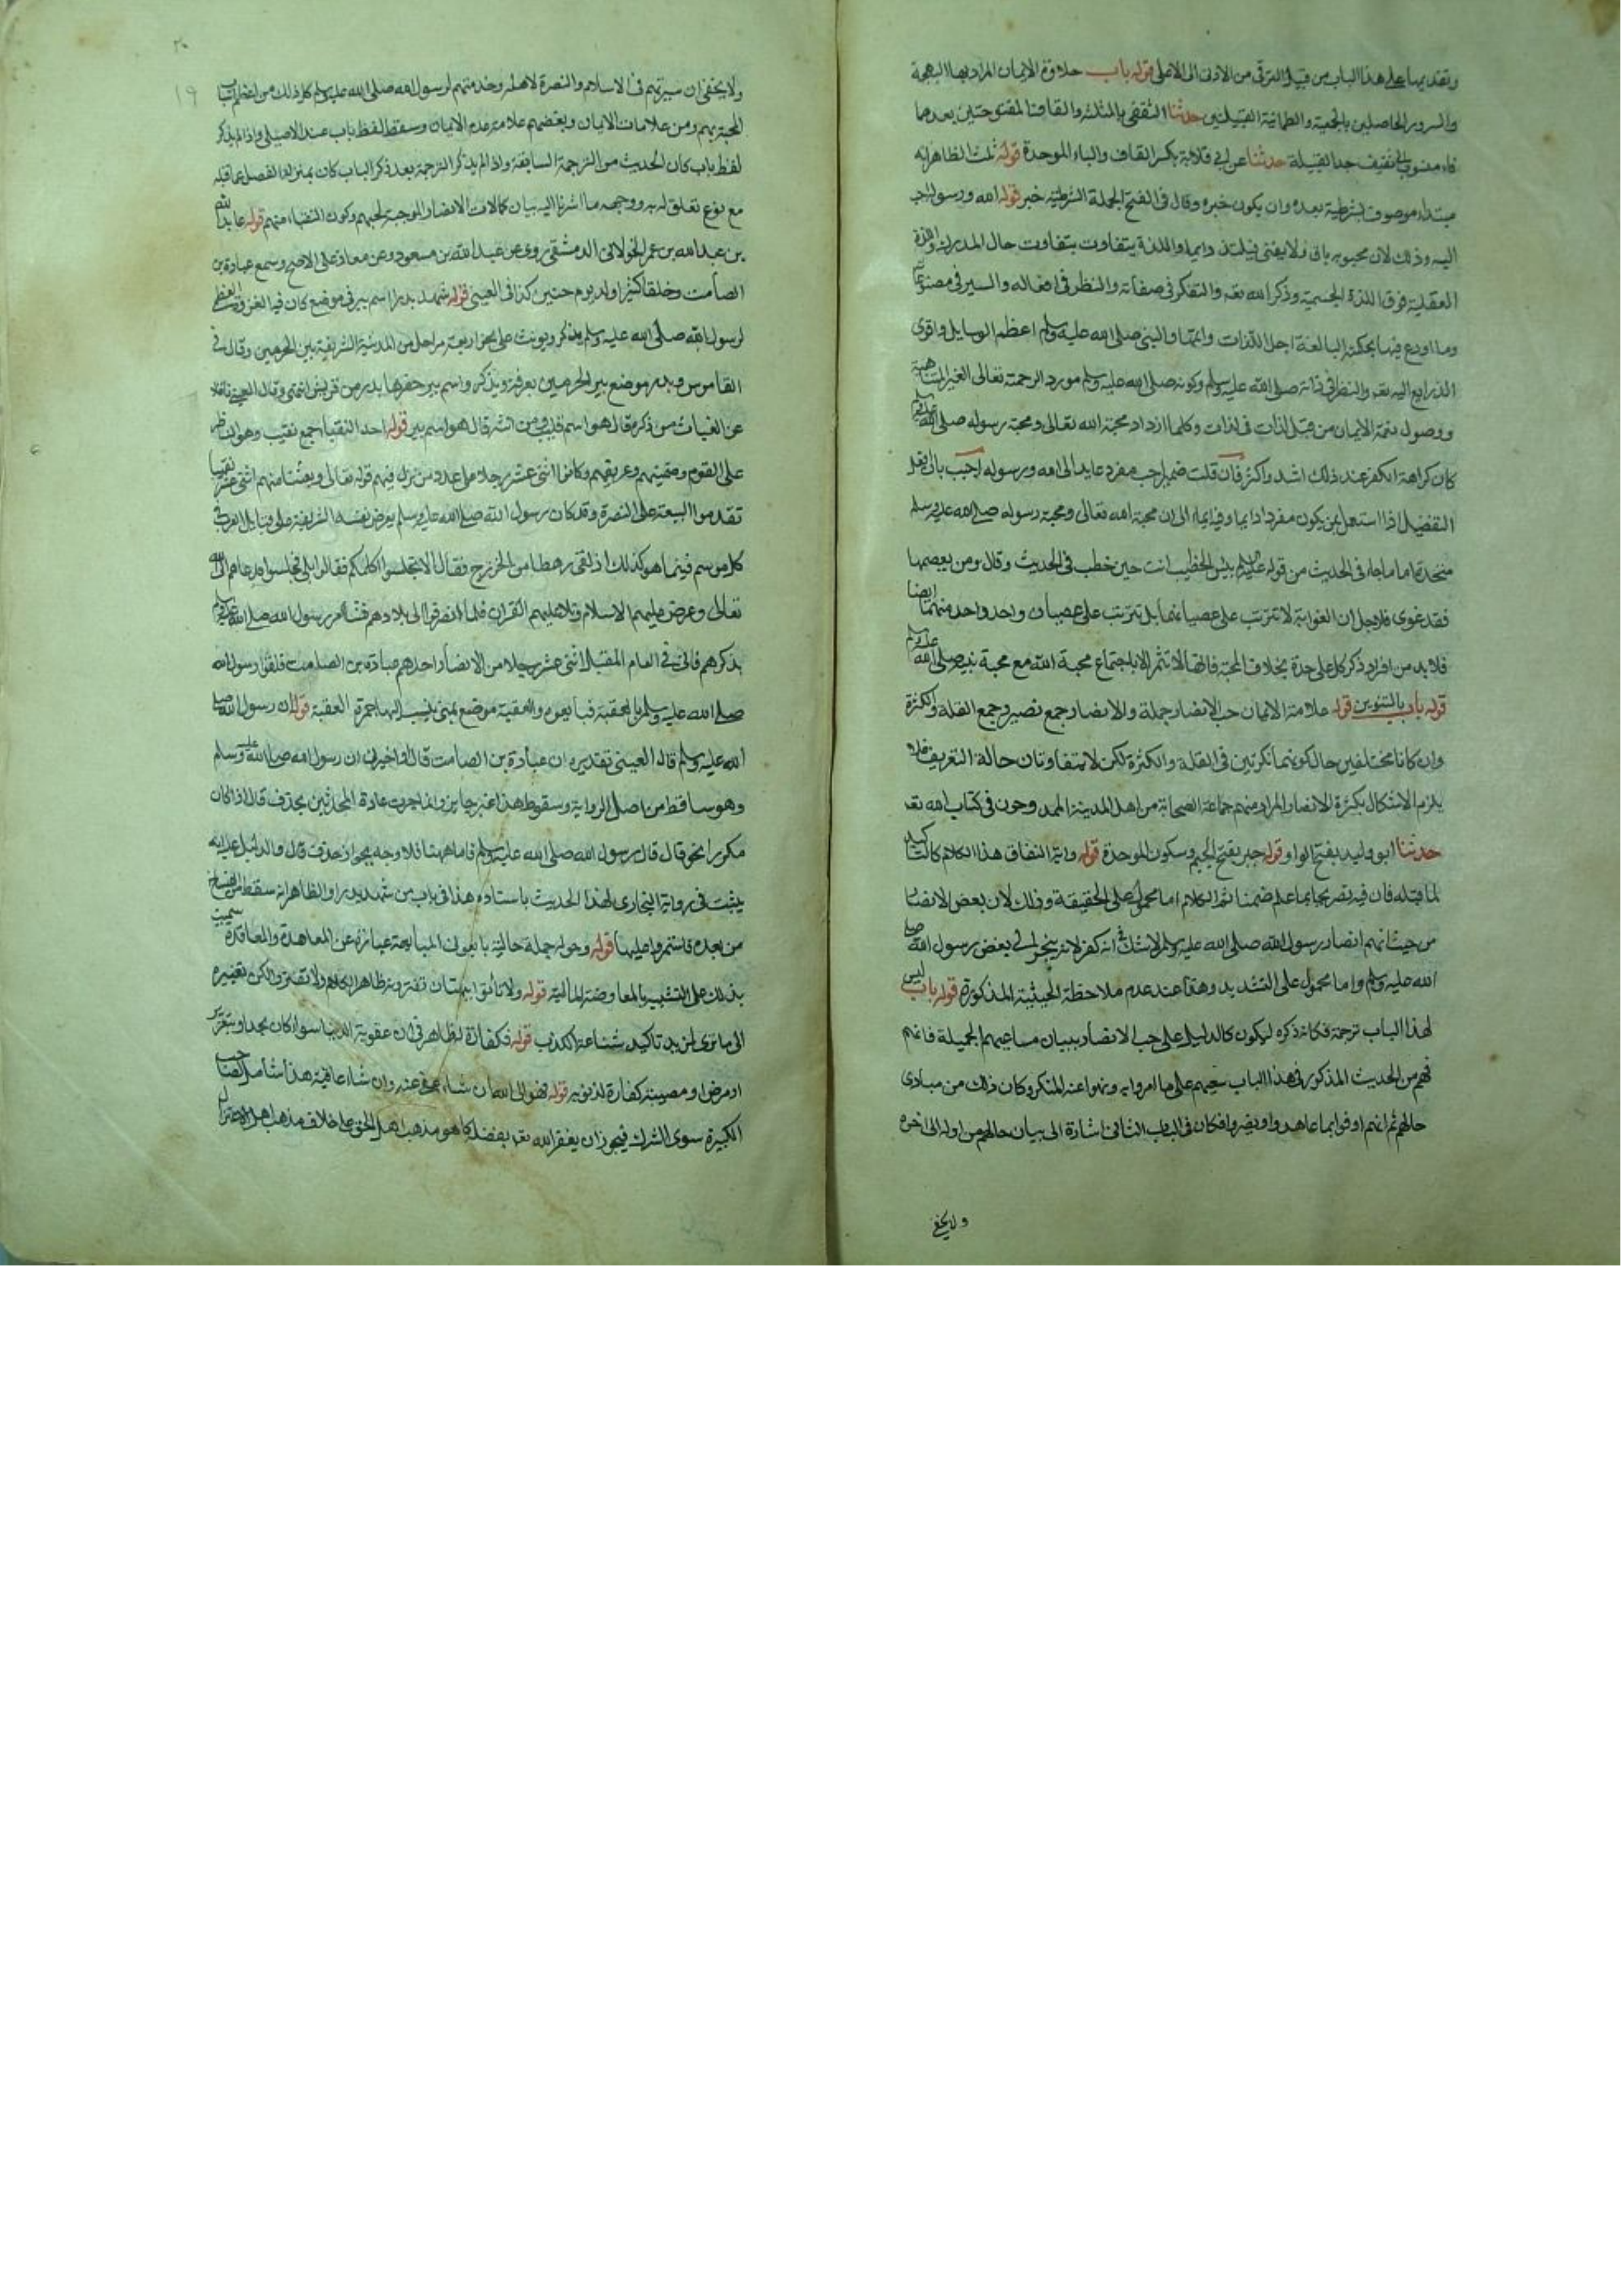 وتقديمها على هذا الباب من قبيل الترقى من الادنى الى الاعلى قوله باب حلاوة الايمان المراد بها البهجة
والسرور الحاصلين بالمحبة والطمانية القبيلتين حدثنا الثقفى بالمثلثه والقاف المفتوحتين بعدهما
فاء منسوب الى ثقيف جد القبيلة حدثنا عن ابى قلابة بكسر القاف والباء الموحدة قوله ثلث الظاهر انه
مبتداء موصوف بشرطية بعده وان يكون خبره وقال فى الفتح الجملة الشرطية خبر قوله الله ورسوله احب
اليه وذلك لان محبوبه باق ولا يفنى فيلتذ دايما واللذة يتفاوت بتفاوت حال المدرك واللذة
العقلية فوق اللذة الجسمية وذكر الله تعه والتفكر فى صفاته والنظر فى افعاله والسير فى مصنوعاته
وما اودع فيها بحكمته البالغة اجل اللذات واتمها والنبى صلى الله عليه وسلم اعظم الوسايل واقوى
الذرايع اليه تعه والنظر فى ذاته صلى الله عليه وسلم وكونه صلى الله عليه وسلم مورد الرحمة تعالى الغير المتناهية
ووصول نعمة الايمان من قبله لذات فى لذات وكلما ازداد محبة الله تعالى ومحبة رسوله صلى الله عليه وسلم
كان كراهة الكفر عند ذلك اشد واكثر فان قلت ضمير احب مفرد عايد الى الله ورسوله اجيب بان افعل
التفضيل اذا استعمل بمن يكون مفردا دايما وفيه ايماء الى ان محبة الله تعالى ومحبة رسوله صلى الله عليه وسلم
متحدة واما ما جاء فى الحديث من قوله عليه السلم بئس الخطيب انت حين خطب فى الحديث وقال ومن يعصهما
فقد غوى فلاجل ان الغواية لا تترتب على عصيانهما بل تترتب على عصيان واحد واحد منهما ايضا
فلا بد من افراد ذكر كل على حدة بخلاف المحبة فانها لا تثمر الا باجتماع محبة الله مع محبة نبيه صلى الله عليه وسلم
قوله باب بالتنوين قوله علامة الايمان حب الانصار جملة والانصار جمع نصير وجمع القلة والكثرة
وان كانا مختلفين حال كونهما نكرتين فى القلة والكثرة لكن لا يتفاوتان حالة التعريف فلا
يلزم الاشكال بكثرة الانصار المراد منهم جماعة الصحابة من اهل المدينة الممدوحون فى كتاب الله تعه
حدثنا ابو وليد بفتح الواو قوله جبر بفتح الجيم وسكون الموحدة قوله واية النفاق هذا الكلام كالتاكيد
لما قبله فان فيه تصريحا بما علم ضمنا ثم الكلام اما محمول على الحقيقة وذلك لان بعض الانصار
من حيث انهم انصار رسول الله صلى الله عليه وسلم لا شك فى انه كفر لانه ينجر الى بغض رسول الله صلى
الله عليه وسلم واما محمول على التشديد وهذا عند عدم ملاحظة الحيثية المذكورة قوله باب ليس
لهذا الباب ترجمة فكانه ذكره ليكون كالدليل على حب الانصار ببيان مساعيهم الجميلة فانهم
فهم من الحديث المذكور فى هذا الباب سعيهم على ما امروا به ونهوا عنه المنكر وكان ذلك من مبادى
حالهم ثم انهم اوفوا بما عاهدوا ونصروا فكان فى الباب الثانى اشارة الى بيان حالهم من اوله الى اخره
ولا يخفى
٢٠
١٩
ولا يخفى ان سيرتهم فى الاسلام والنصرة لاهله وخدمتهم لرسول الله صلى الله عليه وسلم كل ذلك من اعظم اسباب
المحبة بهم ومن علامات الايمان وبغضهم علامة عدم الايمان وسقط لفظ باب عند الاصيلى واذا لم يذكر
لفظ باب كان الحديث من الترجمة السابقة واذا لم يذكر الترجمة بعد ذكر الباب كان بمنزلة الفصل عما قبله
مع نوع تعلق له به ووجهه ما اشرنا اليه بيان كمالات الانصار الموجبة لحبهم وكون النقباء منهم قوله عايذ الله
بن عبد الله بن عمر الخولانى الدمشقى روى عن عبد الله بن مسعود وعن معاذ على الاصح وسمع عبادة بن
الصامت وخلقا كثيرا ولد يوم حنين كذا فى العينى قوله شهد بدرا اسم بير فى موضع كان فيه الغزوة العظمى
لرسول الله صلى الله عليه وسلم يذكر ويونث على نحو اربعة مراحل من المدينة الشريفة بين الحرمين وقال فى
القاموس وبدر موضع بين الحرمين معرفة ويذكر واسم بير حفرها بدر من قريش انتهى وقال العينى ناقلا
عن الغياث من ذكره قال هو اسم قليب ومن انثه قال هو اسم بير قوله احد النقباء جمع نقيب وهو الناظر
على القوم وضمينهم وعريفهم وكانوا اثنى عشر رجلا على عدد من نزل فيهم قوله تعالى وبعثنا منهم اثنى عشر نقيبا
تقدموا البيعة على النصرة وقد كان رسول الله صلى الله عليه وسلم يعرض نفسه الشريفة على قبايل العرب فى
كل موسم فبينما هو كذلك اذ لقى رهطا من الخزرج فقال الا تجلسوا اكلمكم فقالوا بلى فجلسوا فدعاهم الى الله
تعالى وعرض عليهم الاسلام وتلا عليهم القران فلما انصرفوا الى بلادهم فشا امر رسول الله صلى الله عليه وسلم
بذكرهم فاتى فى العام المقبل اثنى عشر رجلا من الانصار احدهم عبادة بن الصامت فلقوا رسول الله
صلى الله عليه وسلم بالعقبة فبايعوه والعقبة موضع بمنى ينسب اليها جمرة العقبة قوله ان رسول الله صلى
الله عليه وسلم قال العينى تقديره ان عبادة بن الصامت قال واخبرك ان رسول الله صلى الله عليه وسلم
وهو ساقط من اصل الرواية وسقوط هذا غير جايز وانما جرت عادة المحدثين بحذف قال اذا كان
مكررا نحو قال قال رسول الله صلى الله عليه وسلم فاما ههنا فلا وجه بجواز حذف قال والدليل عليه انه
يثبت فى رواية البخارى لهذا الحديث باسناده هذا فى باب من شهد بدرا والظاهر انه سقط من النساخ
من بعده فاستمروا عليها قوله وحوله جملة حالية بايعونى المبايعة عبارة عن المعاهدة والمعاقدة سميت
بذلك على التشبيه بالمعاوضة المالية قوله ولا تاتوا ببهتان تفترونه ظاهر الكلام ولا تفتروا لكن تغييره
الى ما ترى لمزيد تاكيد شناعة الكذب قوله فكفارة لظاهر فى ان عقوبة الدنيا سواء كان بحد او بتعزير
او مرض او مصيبة كفارة لذنوبه قوله فهو الى الله ان شاء عفى عنه وان شاء عاقبه هذا شامل لصاحب
الكبيرة سوى الشرك فيجوز ان يغفر الله تعه بفضله كما هو مذهب اهل الحق على خلاف مذهب اهل الاعتزال